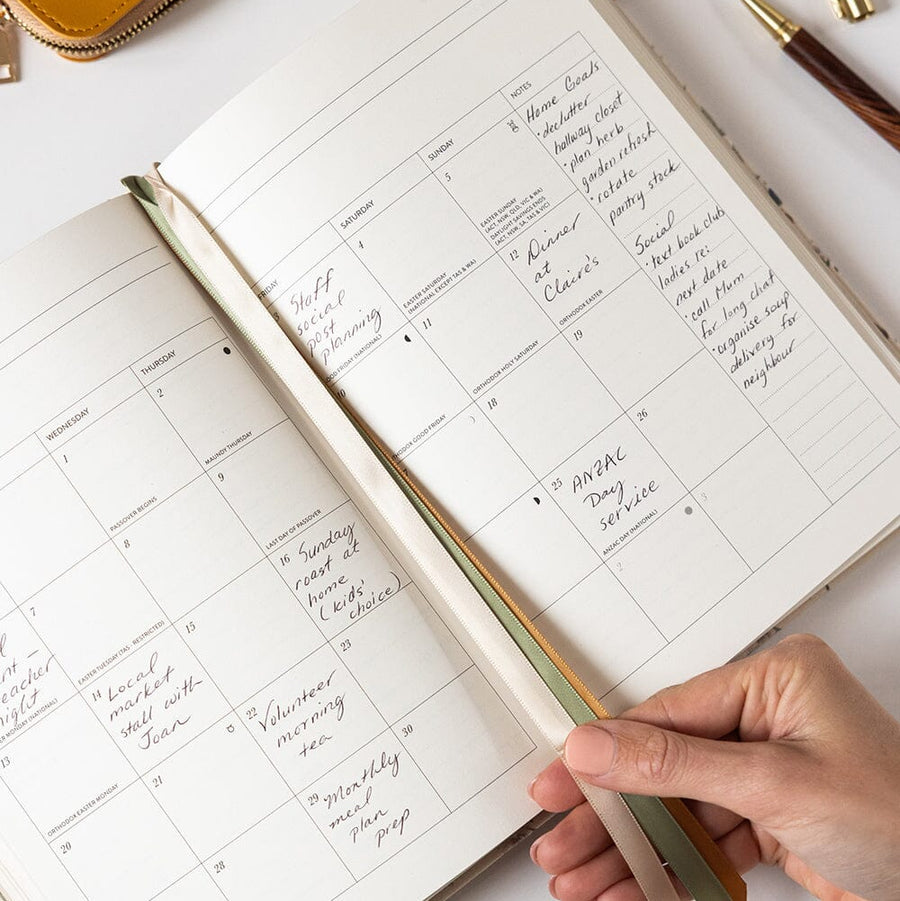 WEDNESDAY
THURSDAY
1
PASSOVER BEGINS
2
MAUNDY THURSDAY
7
EASTER TUESDAY (TAS - RESTRICTED)
8
9
LAST DAY OF PASSOVER
MONDAY (NATIONAL)
13
ORTHODOX EASTER MONDAY
14
Local
market
stall with
Joan
15
16
Sunday
roast at
home
(kids'
choice)
20
21
22
Volunteer
morning
tea
23
28
29
Monthly
meal
plan
prep
30
FRIDAY
SATURDAY
SUNDAY
NOTES
3
Staff
social
post
planning
FRIDAY (NATIONAL)
4
EASTER SATURDAY
(NATIONAL EXCEPT TAS & WA)
5
EASTER SUNDAY
(ACT, NSW, QLD, VIC & WA)
DAYLIGHT SAVINGS ENDS
(ACT, NSW, SA, TAS & VIC)
10
ORTHODOX GOOD FRIDAY
11
ORTHODOX HOLY SATURDAY
12
Dinner
at
Claire's
ORTHODOX EASTER
18
19
25
ANZAC
Day
service
ANZAC DAY (NATIONAL)
26
2
3
Home Goals
• declutter
hallway closet
• plan herb
garden refresh
• rotate
pantry stock
Social
• text book club
ladies re:
next date
• call Mum
for long chat
• organise soup
delivery for
neighbour